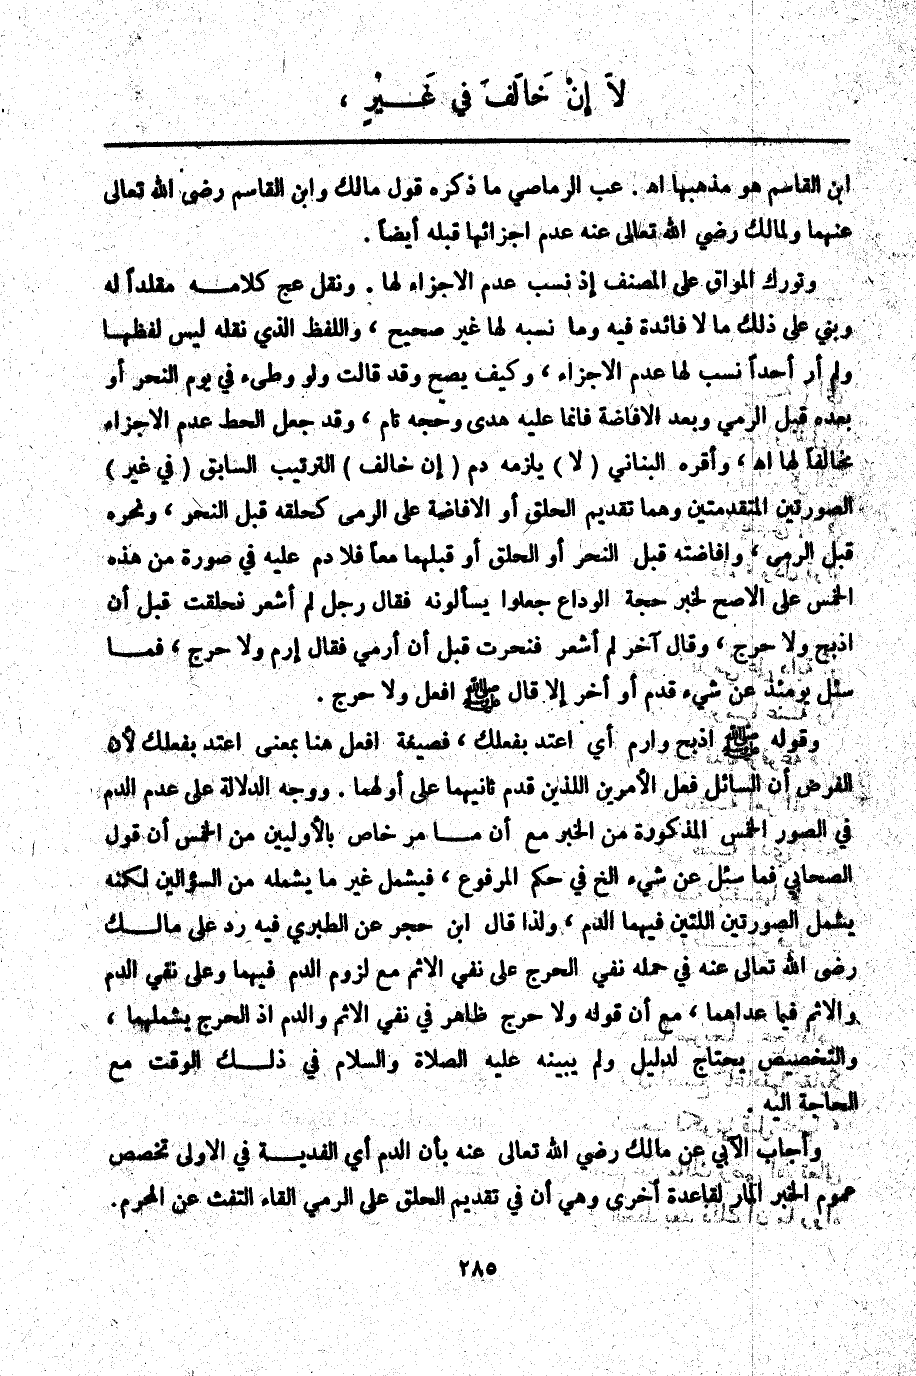 لاَ إِنْ خَالَفَ فِي غَيْرٍ ،
ابن القاسم هو مذهبها اه . عب الرماصي ما ذكره قول مالك وابن القاسم رضى الله تعالى
عنهما ولمالك رضي الله تعالى عنه عدم اجزائها قبله أيضاً .
وتورك المواق على المصنف إذ نسب عدم الاجزاء لها . ونقل عج كلامـــه مقلداً له
وبني على ذلك ما لا فائدة فيه وما نسبه لها غير صحيح ، واللفظ الذي نقله ليس لفظهـا
ولم أر أحداً نسب لها عدم الاجزاء ، وكيف يصح وقد قالت ولو وطىء في يوم النحر أو
بعده قبل الرمي وبعد الافاضة فانما عليه هدى وحجه تام ، وقد جعل الحط عدم الاجزاء
مخالفاً لها اه ، وأقره البناني ( لا ) يلزمه دم ( إن خالف ) الترتيب السابق ( في غير )
الصورتين المتقدمتين وهما تقديم الحلق أو الافاضة على الرمى كحلقه قبل النحر ، ونحره
قبل الرمى ، وافاضته قبل النحر أو الحلق أو قبلهما معاً فلا دم عليه في صورة من هذه
الخمس على الاصح لخبر حجة الوداع جعلوا يسألونه فقال رجل لم أشعر فحلقت قبل أن
اذبح ولا حرج ، وقال آخر لم أشعر فنحرت قبل أن أرمي فقال إرم ولا حرج ، فمــا
سئل يومئذ عن شيء قدم أو أخر إلا قال ﷺ افعل ولا حرج .
وقوله ﷺ اذبح وارم أي اعتد بفعلك ، فصيغة افعل هنا بمعنى اعتد بفعلك لأن
الفرض أن السائل فعل الأمرين اللذين قدم ثانيهما على أولهما . ووجه الدلالة على عدم الدم
في الصور الخمس المذكورة من الخبر مع أن مـــا مر خاص بالأوليين من الخمس أن قول
الصحابي فما سئل عن شيء الخ في حكم المرفوع ، فيشمل غير ما يشمله من السؤالين لكنه
يشمل الصورتين اللتين فيهما الدم ، ولذا قال ابن حجر عن الطبري فيه رد على مالـــك
رضى الله تعالى عنه في حمله نفي الحرج على نفي الاثم مع لزوم الدم فيهما وعلى نفي الدم
والاثم فيما عداهما ، مع أن قوله ولا حرج ظاهر في نفي الاثم والدم اذ الحرج يشملهما ،
والتخصيص يحتاج لدليل ولم يبينه عليه الصلاة والسلام في ذلـــك الوقت مع
الحاجة اليه .
وأجاب الآبي عن مالك رضي الله تعالى عنه بأن الدم أي الفديـــة في الاولى تخصص
عموم الخبر المار لقاعدة أخرى وهي أن في تقديم الحلق على الرمي القاء التفث عن المحرم.
٢٨٥